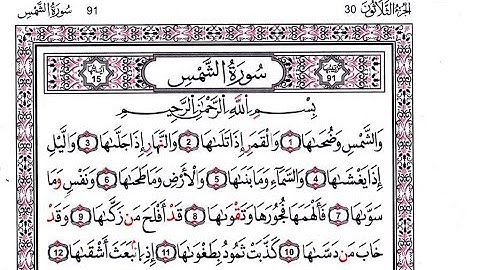 الجزء الثلاثون 30
91 سورة الشمس
سُورَةُ الشَّمْسِ
15
91
بِسْمِ اللَّهِ الرَّحْمَٰنِ الرَّحِيمِ
وَالشَّمْسِ وَضُحَىٰهَا 1 وَالْقَمَرِ إِذَا تَلَىٰهَا 2 وَالنَّهَارِ إِذَا جَلَّىٰهَا 3 وَالَّيْلِ
إِذَا يَغْشَىٰهَا 4 وَالسَّمَآءِ وَمَا بَنَىٰهَا 5 وَالْأَرْضِ وَمَا طَحَىٰهَا 6 وَنَفْسٍ وَمَا
سَوَّىٰهَا 7 فَأَلْهَمَهَا فُجُورَهَا وَتَقْوَىٰهَا 8 قَدْ أَفْلَحَ مَن زَكَّىٰهَا 9 وَقَدْ
خَابَ مَن دَسَّىٰهَا 10 كَذَّبَتْ ثَمُودُ بِطَغْوَىٰهَا 11 إِذِ انۢبَعَثَ أَشْقَىٰهَا 12